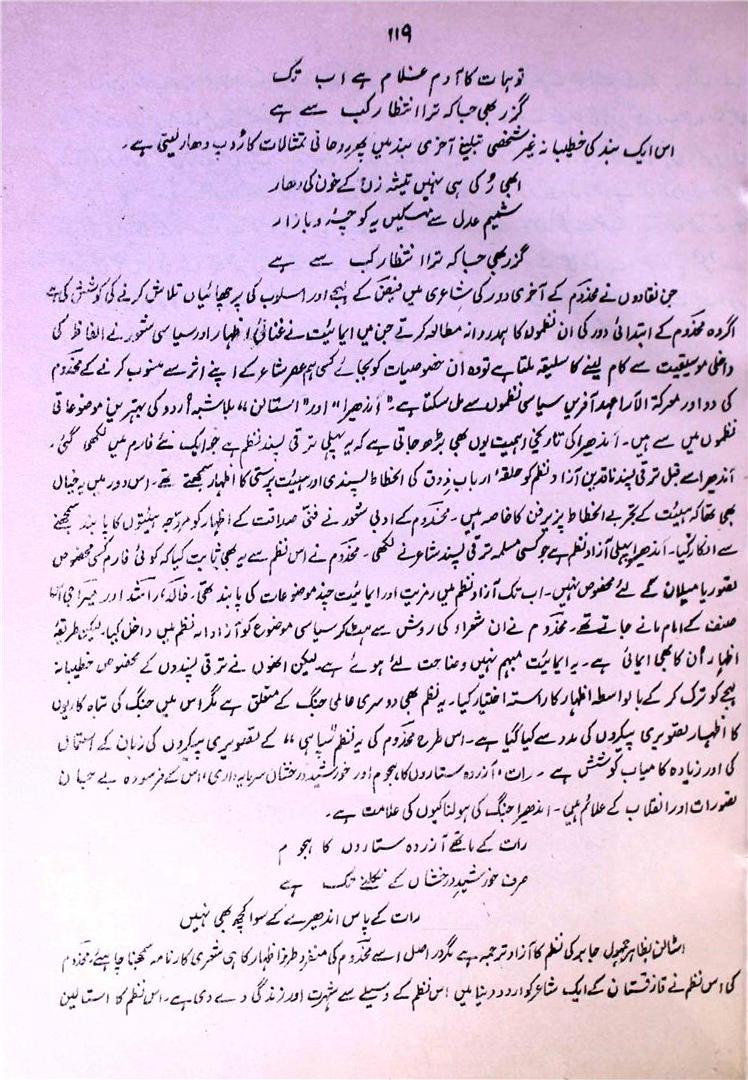 ۱۱۹
توہمات کا آدم غلام ہے اب تک
گزر بھی جا کہ ترا انتظار کب سے ہے
اس ایک بند کی خطیبانہ غیر شخصی تبلیغ آخری بند میں پھر وجدانی تمثالات کا رُوپ دھار لیتی ہے۔
ابھی رُکی ہی نہیں تیشہ زن کے خون کی دھار
شمیم عدل سے مہکیں یہ کوچہ و بازار
گزر بھی جا کہ ترا انتظار کب سے ہے
جن نقادوں نے مخدوم کے آخری دور کی شاعری میں فیض کے لہجے اور اسلوب کی پرچھائیاں تلاش کرنے کی کوشش کی ہے
اگر وہ مخدوم کے ابتدائی دور کی ان نظموں کا ہمدردانہ مطالعہ کرتے جن میں ایمائیت نے غنائی اظہار اور سیاسی شعور نے الفاظ کی
داخلی موسیقیت سے کام لینے کا سلیقہ ملتا ہے تو وہ ان خصوصیات کو بجائے کسی ہم عصر شاعر کے اپنے اثر سے منسوب کرنے کے مخدوم
کی دو اور معرکۃ الآرا عہد آفریں سیاسی نظموں سے مل سکتا ہے۔ "اندھیرا" اور "استالن" بلا شبہ اُردو کی بہترین موضوعاتی
نظموں میں سے ہیں۔ اندھیرا کی تاریخی اہمیت یوں بھی بڑھ جاتی ہے کہ یہ پہلی ترقی پسند نظم ہے جو ایک نئے فارم میں لکھی گئی۔
اندھیرا سے قبل ترقی پسند ناقدین آزاد نظم کو حلقۂ ارباب ذوق کی انحطاط پسندی اور ہیئت پرستی کا اظہار سمجھتے تھے۔ اس دور میں یہ خیال
بھی تھا کہ ہیئت کے تجربے انحطاط پزیر فن کا خاصہ ہیں۔ مخدوم کے ادبی شعور نے فنی صداقت کے اظہار کو مروجہ ہیئتوں کا پابند سمجھنے
سے انکار کیا۔ اندھیرا پہلی آزاد نظم ہے جو کسی مسلمہ ترقی پسند شاعر نے لکھی۔ مخدوم نے اس نظم سے یہ بھی ثابت کیا کہ کوئی فارم کسی مخصوص
تصور یا میلان کے لئے مخصوص نہیں۔ اب تک آزاد نظم میں رمزیت اور ایمائیت چند موضوعات کی پابند تھی۔ خالد، راشد اور میراجی اس
صنف کے امام مانے جاتے تھے۔ مخدوم نے ان شعراء کی روش سے ہٹ کر سیاسی موضوع کو آزادانہ نظم میں داخل کیا۔ لیکن طریقۂ
اظہار اُن کا بھی ایمائی ہے۔ یہ ایمائیت مبہم نہیں وضاحت لئے ہوئے ہے۔ لیکن انھوں نے ترقی پسندوں کے مخصوص خطیبانہ
لہجے کو ترک کر کے بالواسطہ اظہار کا راستہ اختیار کیا۔ یہ نظم بھی دوسری عالمی جنگ کے متعلق ہے مگر اس میں جنگ کی تباہ کاریوں
کا اظہار تصویری پیکروں کی مدد سے کیا گیا ہے۔ اس طرح مخدوم کی یہ نظم "سپاہی" کے تصویری پیکروں کی زبان کے استعمال
کی اور زیادہ کامیاب کوشش ہے۔ رات، آزردہ ستاروں کا ہجوم اور خورشید درخشاں سرمایہ داری، اس کے فرسودہ بے جان
تصورات اور انقلاب کے علائم ہیں۔ اندھیرا جنگ کی ہولناکیوں کی علامت ہے۔
رات کے ماتھے آزردہ ستاروں کا ہجوم
صرف خورشید درخشاں کے نکلنے تک ہے
رات کے پاس اندھیرے کے سوا کچھ بھی نہیں
استالن بظاہر جمبول جابر کی نظم کا آزاد ترجمہ ہے مگر دراصل اسے مخدوم کی منفرد طرز اظہار کا ہی شعری کارنامہ سمجھنا چاہیئے۔ مخدوم
کی اس نظم نے قازقستان کے ایک شاعر کو اردو دنیا میں اس نظم کے وسیلے سے شہرت اور زندگی دے دی ہے۔ اس نظم کا استالین